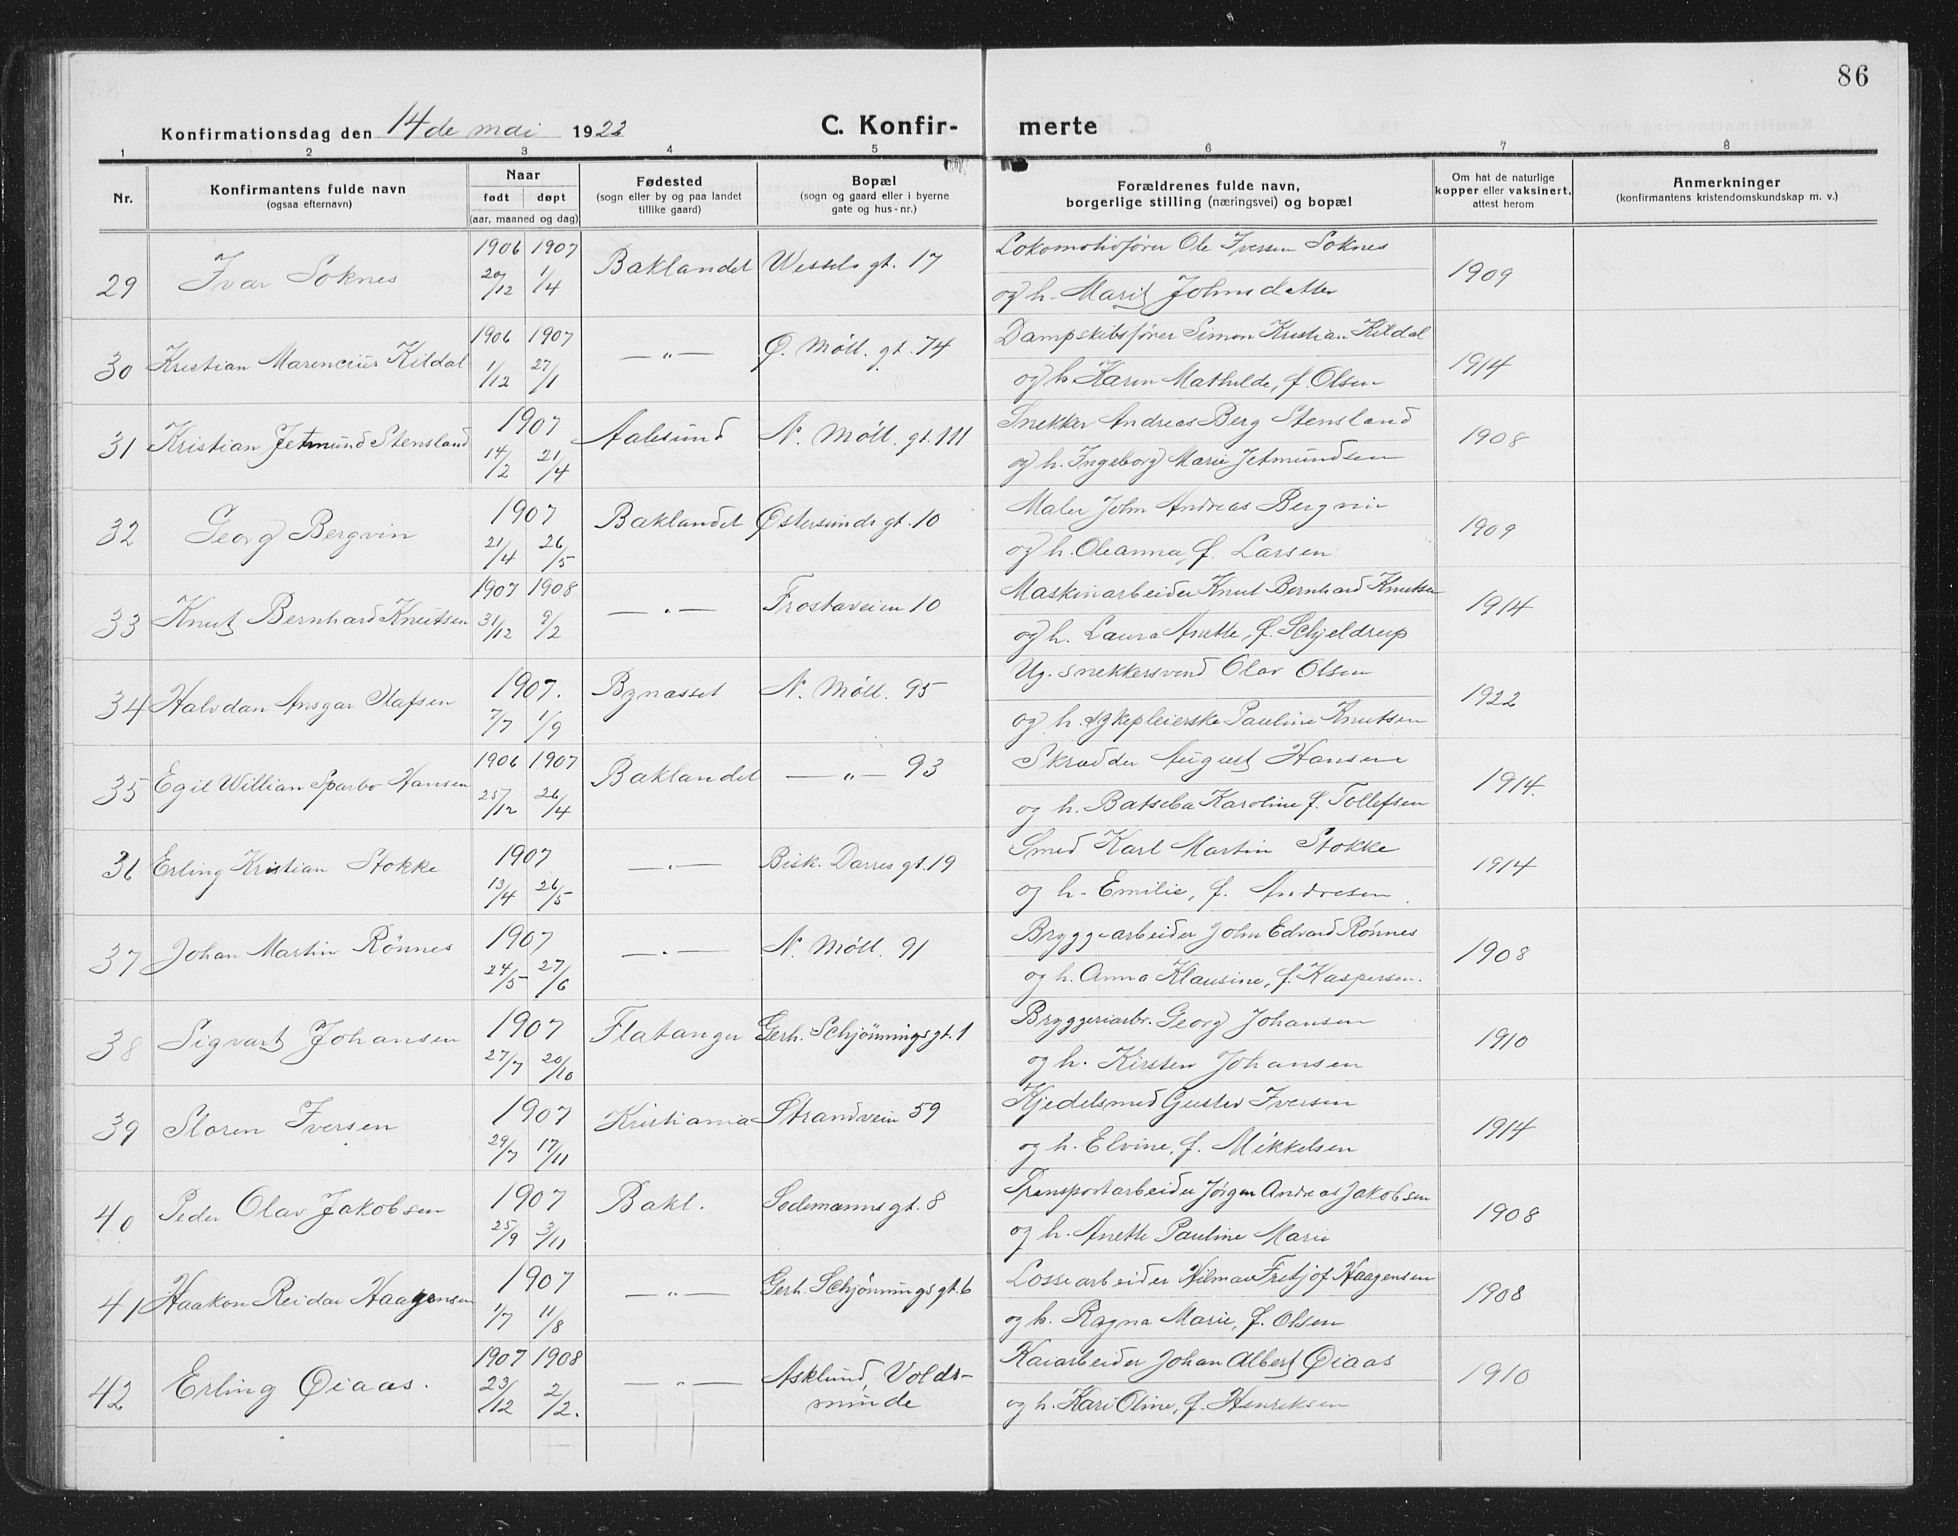 86
Konfirmationsdag den 14de mai 1922
C. Konfirmerte
1 2 3 4 5 6 7 8
Nr.
Konfirmantens fulde navn
(ogsaa efternavn)
Naar
født døpt
(aar, maaned og dag)
Fødested
(sogn eller by og paa landet
tillike gaard)
Bopæl
(sogn og gaard eller i byerne
gate og hus-nr.)
Forældrenes fulde navn,
borgerlige stilling (næringsvei) og bopæl
Om hat de naturlige
kopper eller vaksinert,
attest herom
Anmerkninger
(konfirmantens kristendomskundskap m. v.)
29 Ivar Soknes 1906 20/12 1907 1/4 Baklandet Wessels gt. 17 Lokomotivfører Ole Iversen Soknes
og h. Marit Johnsdatter 1909
30 Kristian Marencius Kildal 1906 1/12 1907 27/1 —„— Ø. Möll. gt. 74 Dampskibsfører Simon Kristian Kildal
og h. Karen Mathilde, f. Olsen 1914
31 Kristian Jetmund Stensland 1907 14/2 21/4 Aalesund N. Möll. gt. 111 Snekker Andreas Berg Stensland
og h. Ingeborg Marie Jetmundsen 1908
32 Georg Bergvin 1907 21/4 26/5 Baklandet Østersunds gt. 10 Maler John Andreas Bergvin
og h. Oleanna, f. Larsen 1909
33 Knut Bernhard Knutsen 1907 31/12 1908 9/2 —„— Frostaveien 10 Maskinarbeider Knut Bernhard Knutsen
og h. Laura Anette, f. Schjeldrup 1914
34 Halvdan Ansgar Olafsen 1907. 7/7 1/9 Bynesset N. Möll. 95 Ug. snekkersvend Olav Olsen
og h. sykepleierske Pauline Knutsen 1922
35 Egil Willian Sparbo Hansen 1906 25/12 1907 26/4 Baklandet —„— 93 Skrædder August Hansen
og h. Batseba Karoline f. Tollefsen 1914.
36 Erling Kristian Stokke 1907 13/4 26/5 —„— Bisk. Darres gt. 19 Smed Karl Martin Stokke
og h. Emilie, f. Andresen 1914
37 Johan Martin Rönnes 1907 24/5 27/6 —„— N. Möll. 91 Bryggearbeider John Edvard Rönnes
og h. Anna Klausine, f. Kaspersen. 1908
38 Sigvart Johansen 1907 27/7 20/10 Flatanger Gerh. Schjönnings gt. 1 Bryggeriarb. Georg Johansen
og h. Kirsten Johansen 1910
39 Sloren Iversen 1907 29/7 17/11 Kristiania Strandvein 59 Kjedelsmed Gustav Iversen
og h. Elvine, f. Mikkelsen 1914
40 Peder Olav Jakobsen 1907 25/9 3/11 Bakl. Sodemanns gt. 8 Transportarbeider Jörgen Andreas Jakobsen
og h. Anette Pauline Marie 1908
41 Haakon Reidar Haagensen 1907 1/7 11/8 —„— Gerh. Schjönnings gt. 6 Lossearbeider Hilmar Fretjof Haagensen
og h. Ragna Marie, f. Olsen 1908
42 Erling Øiaas. 1907 23/12 1908 2/2. —„— Asklund, Voldsminde Kaiarbeider Johan Albert Øiaas
og h. Kari Oline, f. Henriksen 1910